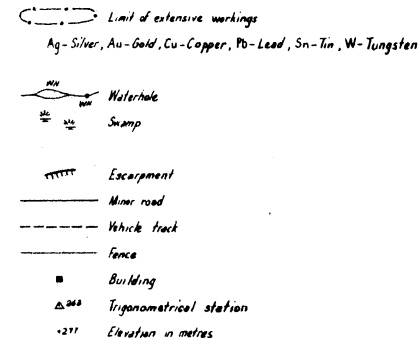 Limit of extensive workings
Ag-Silver, Au-Gold, Cu-Copper, Pb-Lead, Sn-Tin, W-Tungsten
WH
Waterhole
WH
Swamp
Escarpment
Minor road
Vehicle track
Fence
Building
268 Trigonometrical station
+277 Elevation in metres